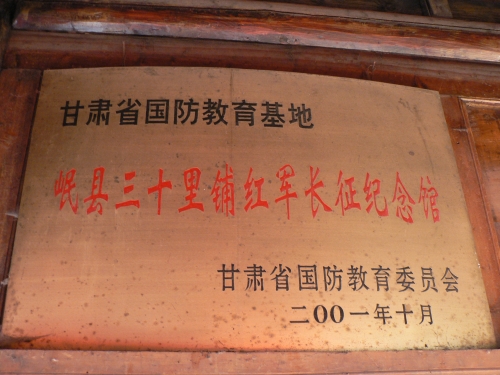 甘肃省国防教育基地
岷县三十里铺红军长征纪念馆
甘肃省国防教育委员会
二〇〇一年十月